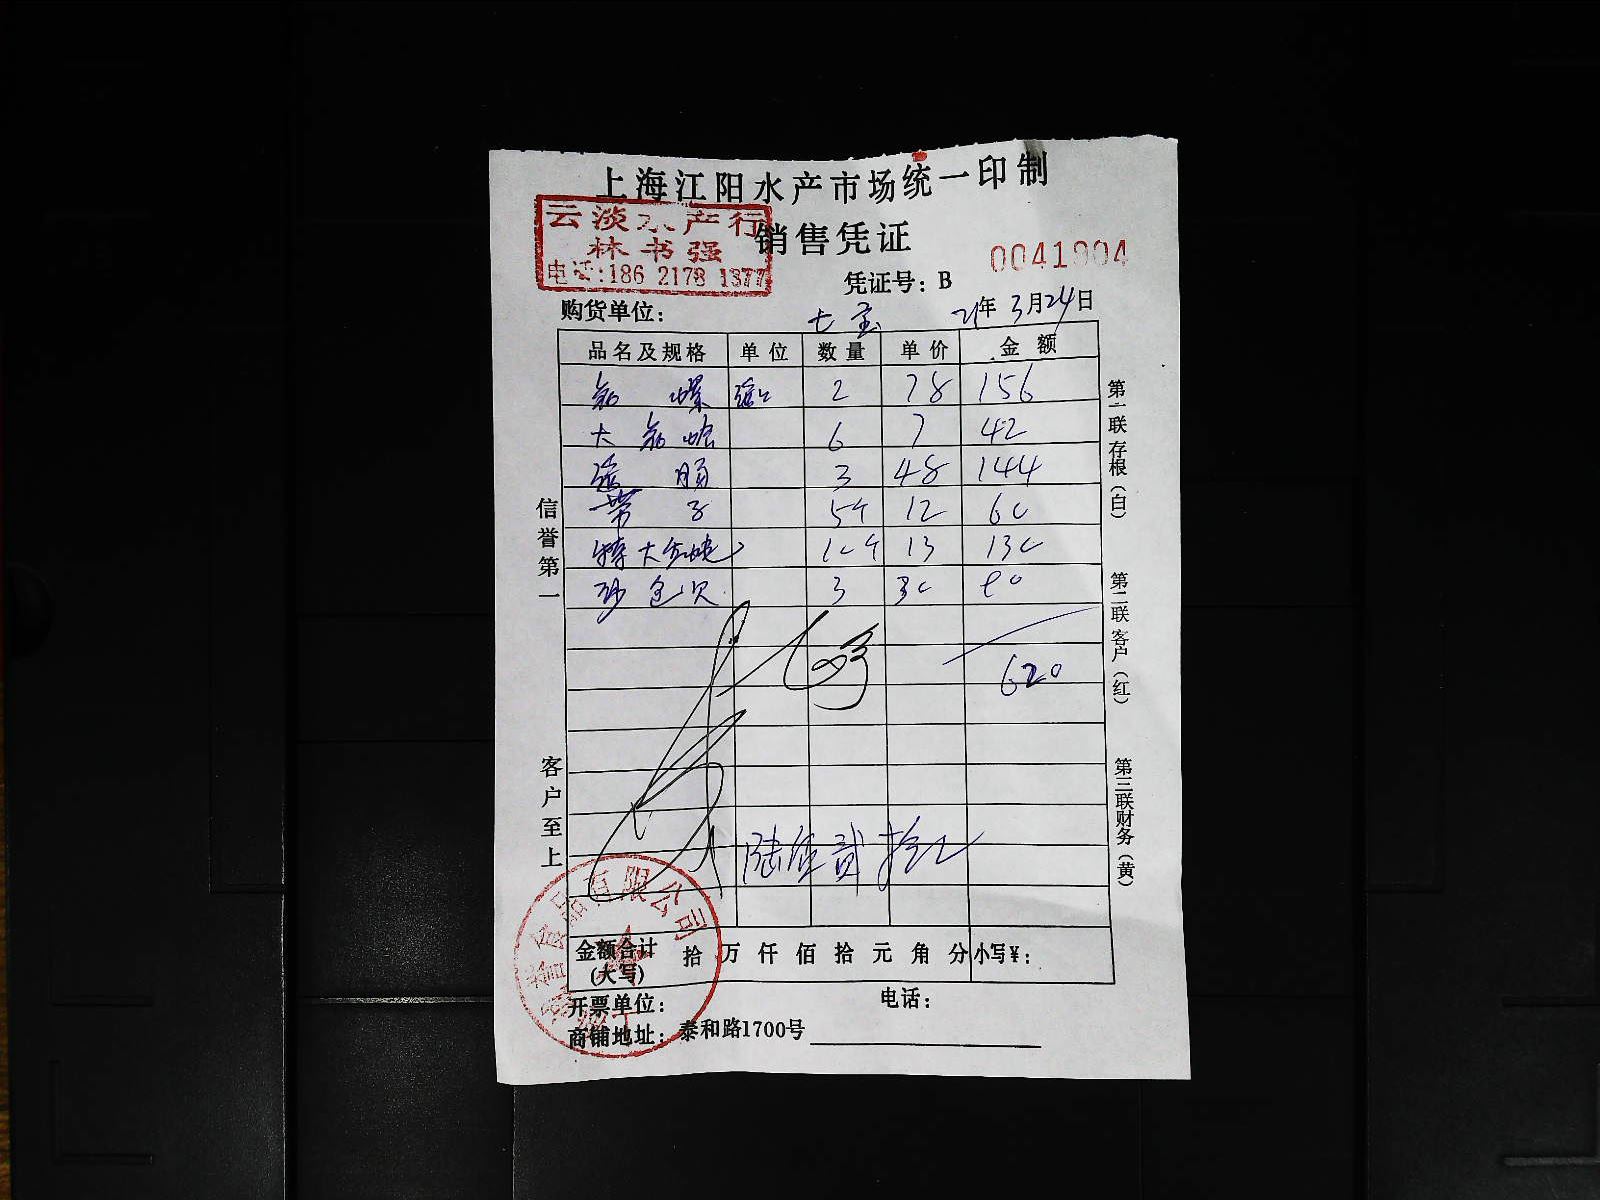 上海江阳水产市场统一印制
云淡水产行
林书强
电话:186 2178 1377
销售凭证
凭证号:B 0041904
购货单位: 七宝 21年 3月24日
品名及规格 单位 数量 单价 金额
螺 2 78 156
大 6 7 42
3 48 144
带子 5个 12 60
特大 10个 13 130
3 30 90
620
陆佰贰拾元
信誉第一
客户至上
第一联存根(白)
第二联客户(红)
第三联财务(黄)
食品有限公司
金额合计(大写) 拾万仟佰拾元角分 小写¥:
开票单位: 电话:
商铺地址: 泰和路1700号